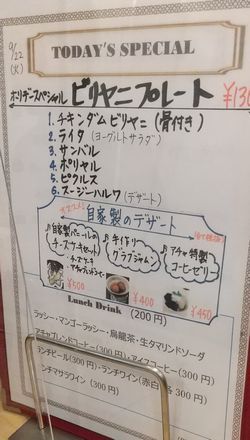 9/22
(火)
TODAY'S SPECIAL
ホリデースペシャル ビリヤニプレート ¥130
1. チキンダムビリヤニ (骨付き)
2. ライタ (ヨーグルトサラダ)
3. サンバル
4. ポリヤル
5. ピクルス
6. スージーハルワ (デザート)
オススメ!
自家製のデザート
自家製パニールの
チーズケーキセット
手作り
グラブジャムン
アチャ特製
コーヒーゼリー
¥500
¥400
¥450
Lunch Drink (200円)
ラッシー・マンゴーラッシー・烏龍茶・生タマリンドソーダ
アチャブレンドコーヒー(300円)・アイスコーヒー(300円)
ランチビール(300円)・ランチワイン(赤白 各300円)
ランチマサラワイン(300円)